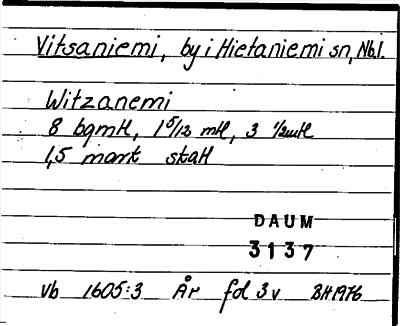 Vitsaniemi, by i Hietaniemi sn, Nb.l.
Witzanemi
8 bgmtl, 1 5/12 mtl, 3 1/2mtl
1,5 mark skatt
DAUM
3137
Vb 1605:3 År fol 3v BH1976